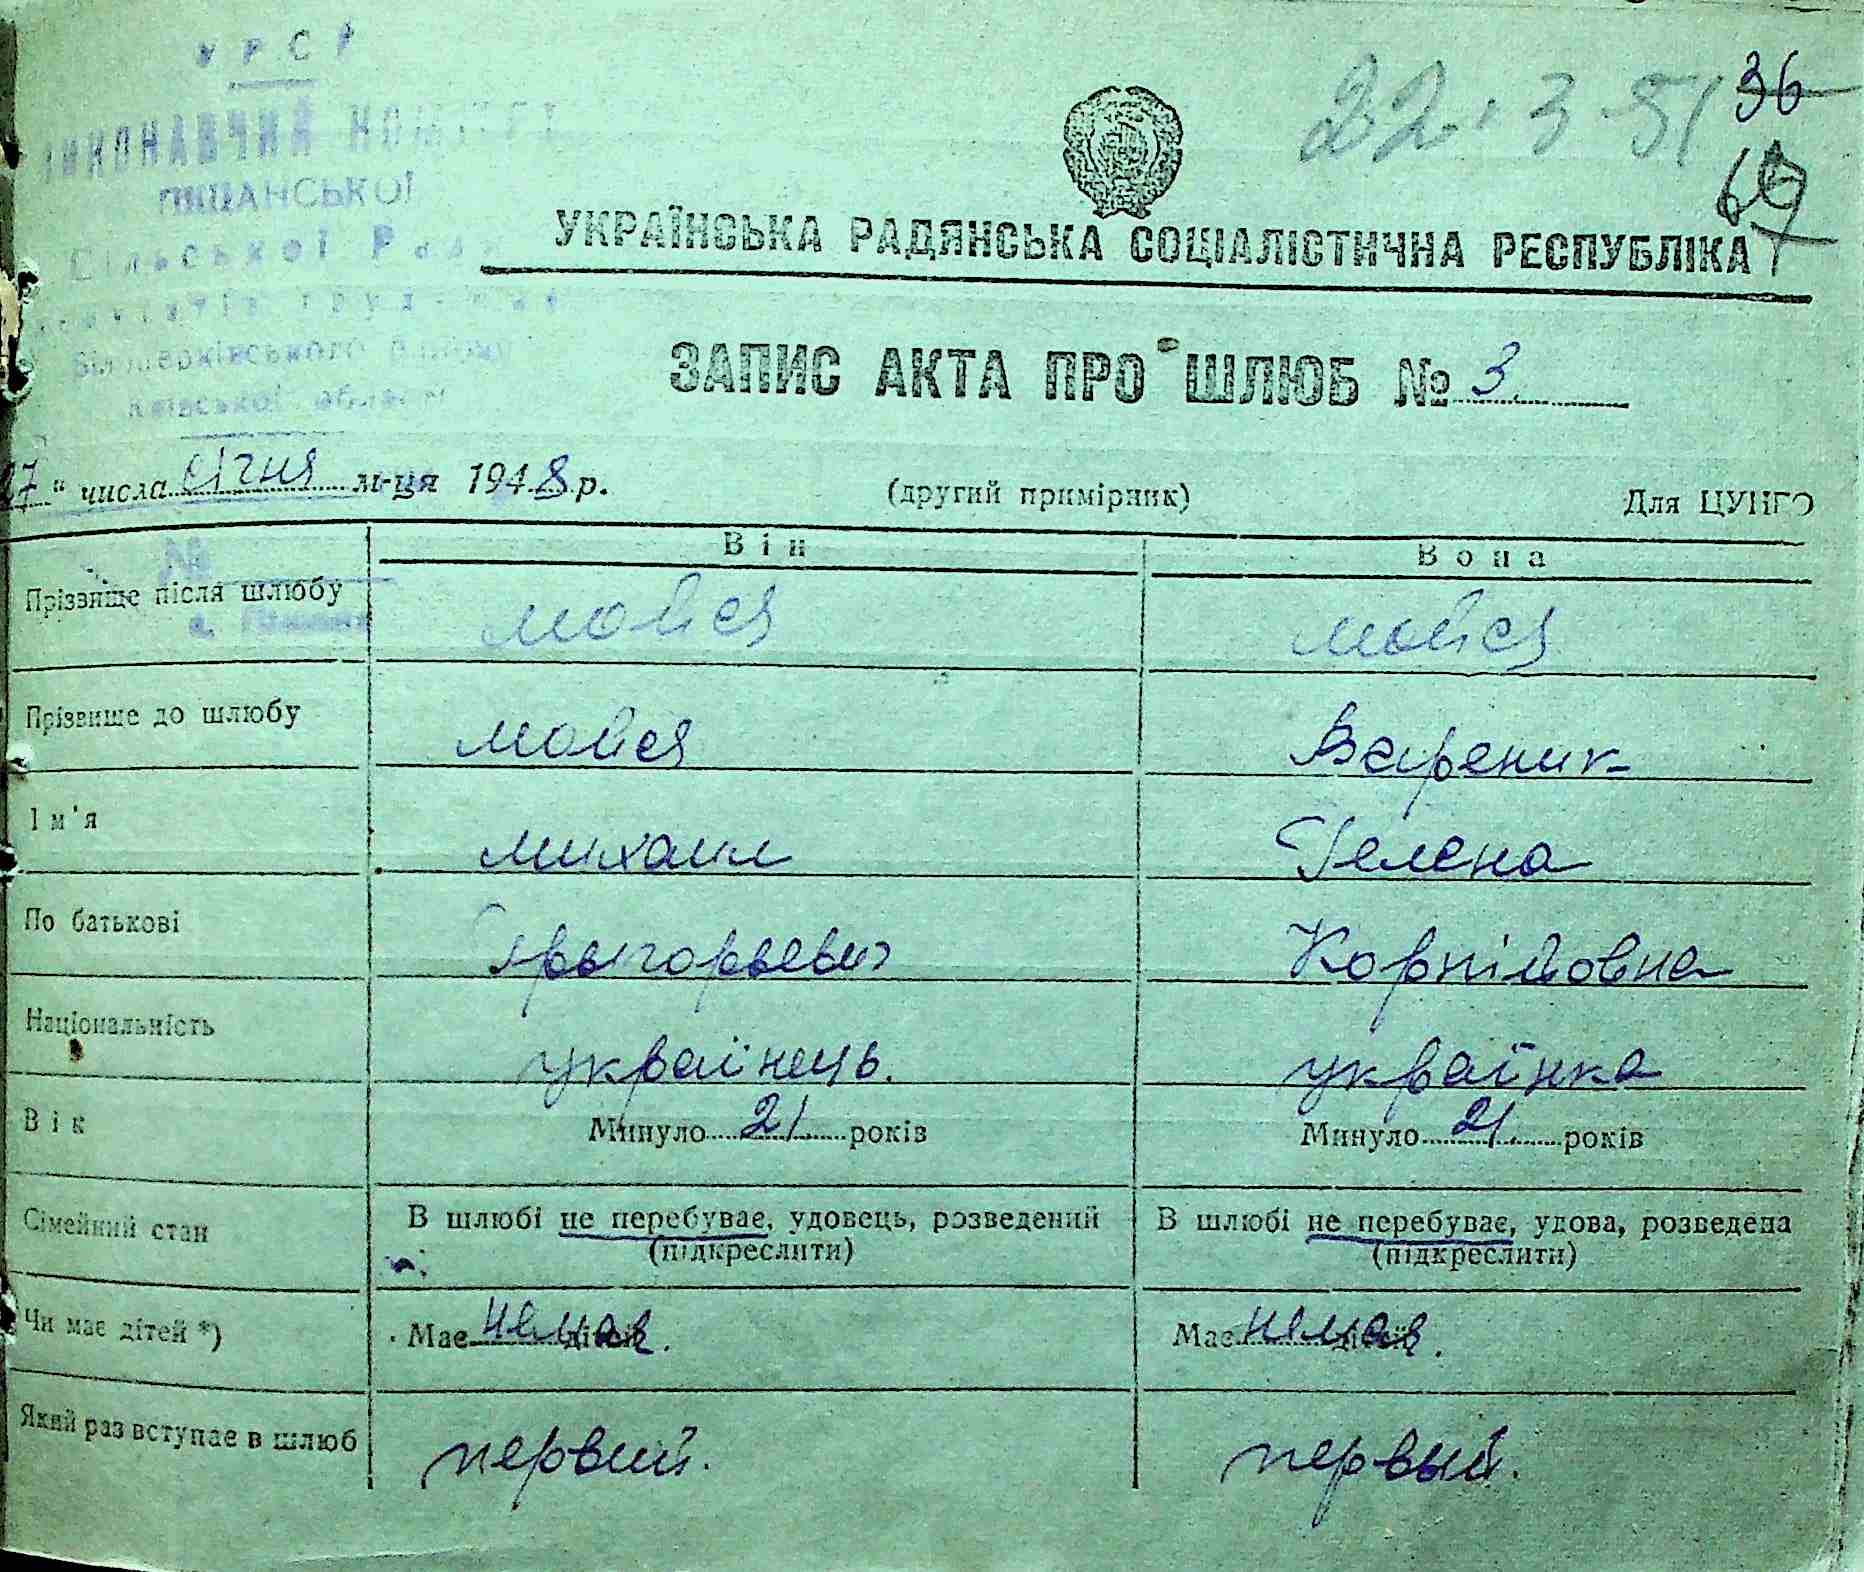 УРСР
ВИКОНАВЧИЙ КОМІТЕТ
ПІЩАНСЬКОЇ
Сільської Рад
Білоцерківського району
Київської області
22.3.51
36
67
УКРАЇНСЬКА РАДЯНСЬКА СОЦІАЛІСТИЧНА РЕСПУБЛІКА
ЗАПИС АКТА ПРО ШЛЮБ № 3
27 " числа січня м-ця 1948 р. (другий примірник) Для ЦУНГО
Він Вона
№
Прізвище після шлюбу Мойся Мойся
Прізвище до шлюбу Мойся Вареник
Ім'я Михаил Гелена
По батькові Грыгорьевич Корнійовна
Національність українець. українка
Вік Минуло 21 років Минуло 21 років
Сімейний стан В шлюбі не перебуває, удовець, розведений В шлюбі не перебуває, удова, розведена
(підкреслити) (підкреслити)
Чи має дітей *) Має немає дітей. Має немає дітей.
Який раз вступає в шлюб первий. первый.